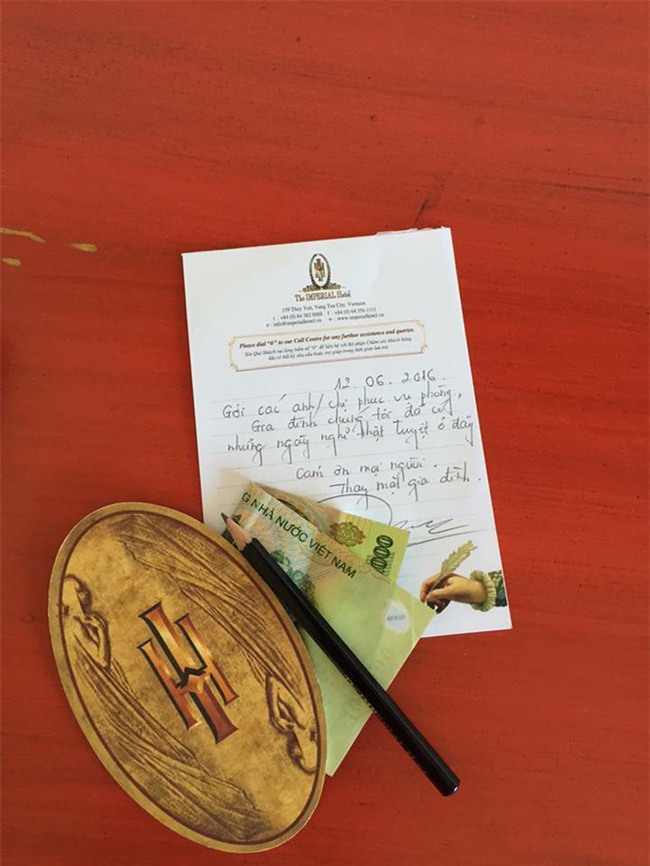 The IMPERIAL Hotel
159 Thuy Van, Vung Tau City, Vietnam
t : +84 (0) 64 362 8888 f : +84 (0) 64 356 1111
e : info@imperialhotel.vn w : www.imperialhotel.vn
Please dial "0" to our Call Centre for any further assistance and queries.
Xin Quý khách vui lòng bấm số "0" để liên hệ với Bộ phận Chăm sóc khách hàng
khi có bất kỳ yêu cầu hoặc trợ giúp trong thời gian lưu trú.
12. 06. 2016.
Gởi các anh/chị phục vụ phòng,
Gia đình chúng tôi đã có
những ngày nghỉ thật tuyệt ở đây
Cám ơn mọi người.
Thay mặt gia đình.
G NHÀ NƯỚC VIỆT NAM
000